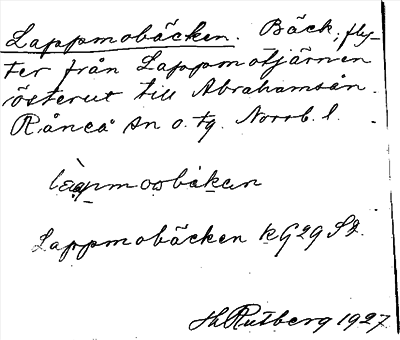 Lappmobäcken. Bäck, fly-
ter från Lappmotjärnen
österut till Abrahamsån.
Råneå sn o. tg. Norrb. l.
Lappmobäcken k G29 S2
Hh Rutberg 1927